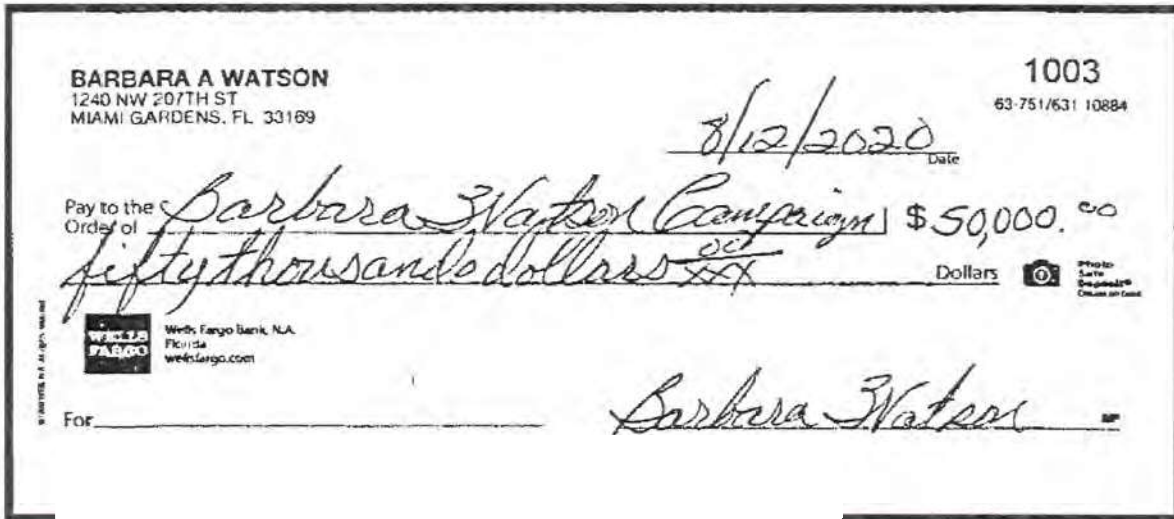 BARBARA A WATSON
1240 NW 207TH ST
MIAMI GARDENS, FL 33169
1003
63-751/631 10884
8/12/2020
Date
Pay to the Order of Barbara Watson Campaign $50,000.00
fifty thousands dollars 00/xxx Dollars
Photo Safe Deposit®
WELLS FARGO
Wells Fargo Bank, N.A.
Florida
wellsfargo.com
For Barbara Watson
MP